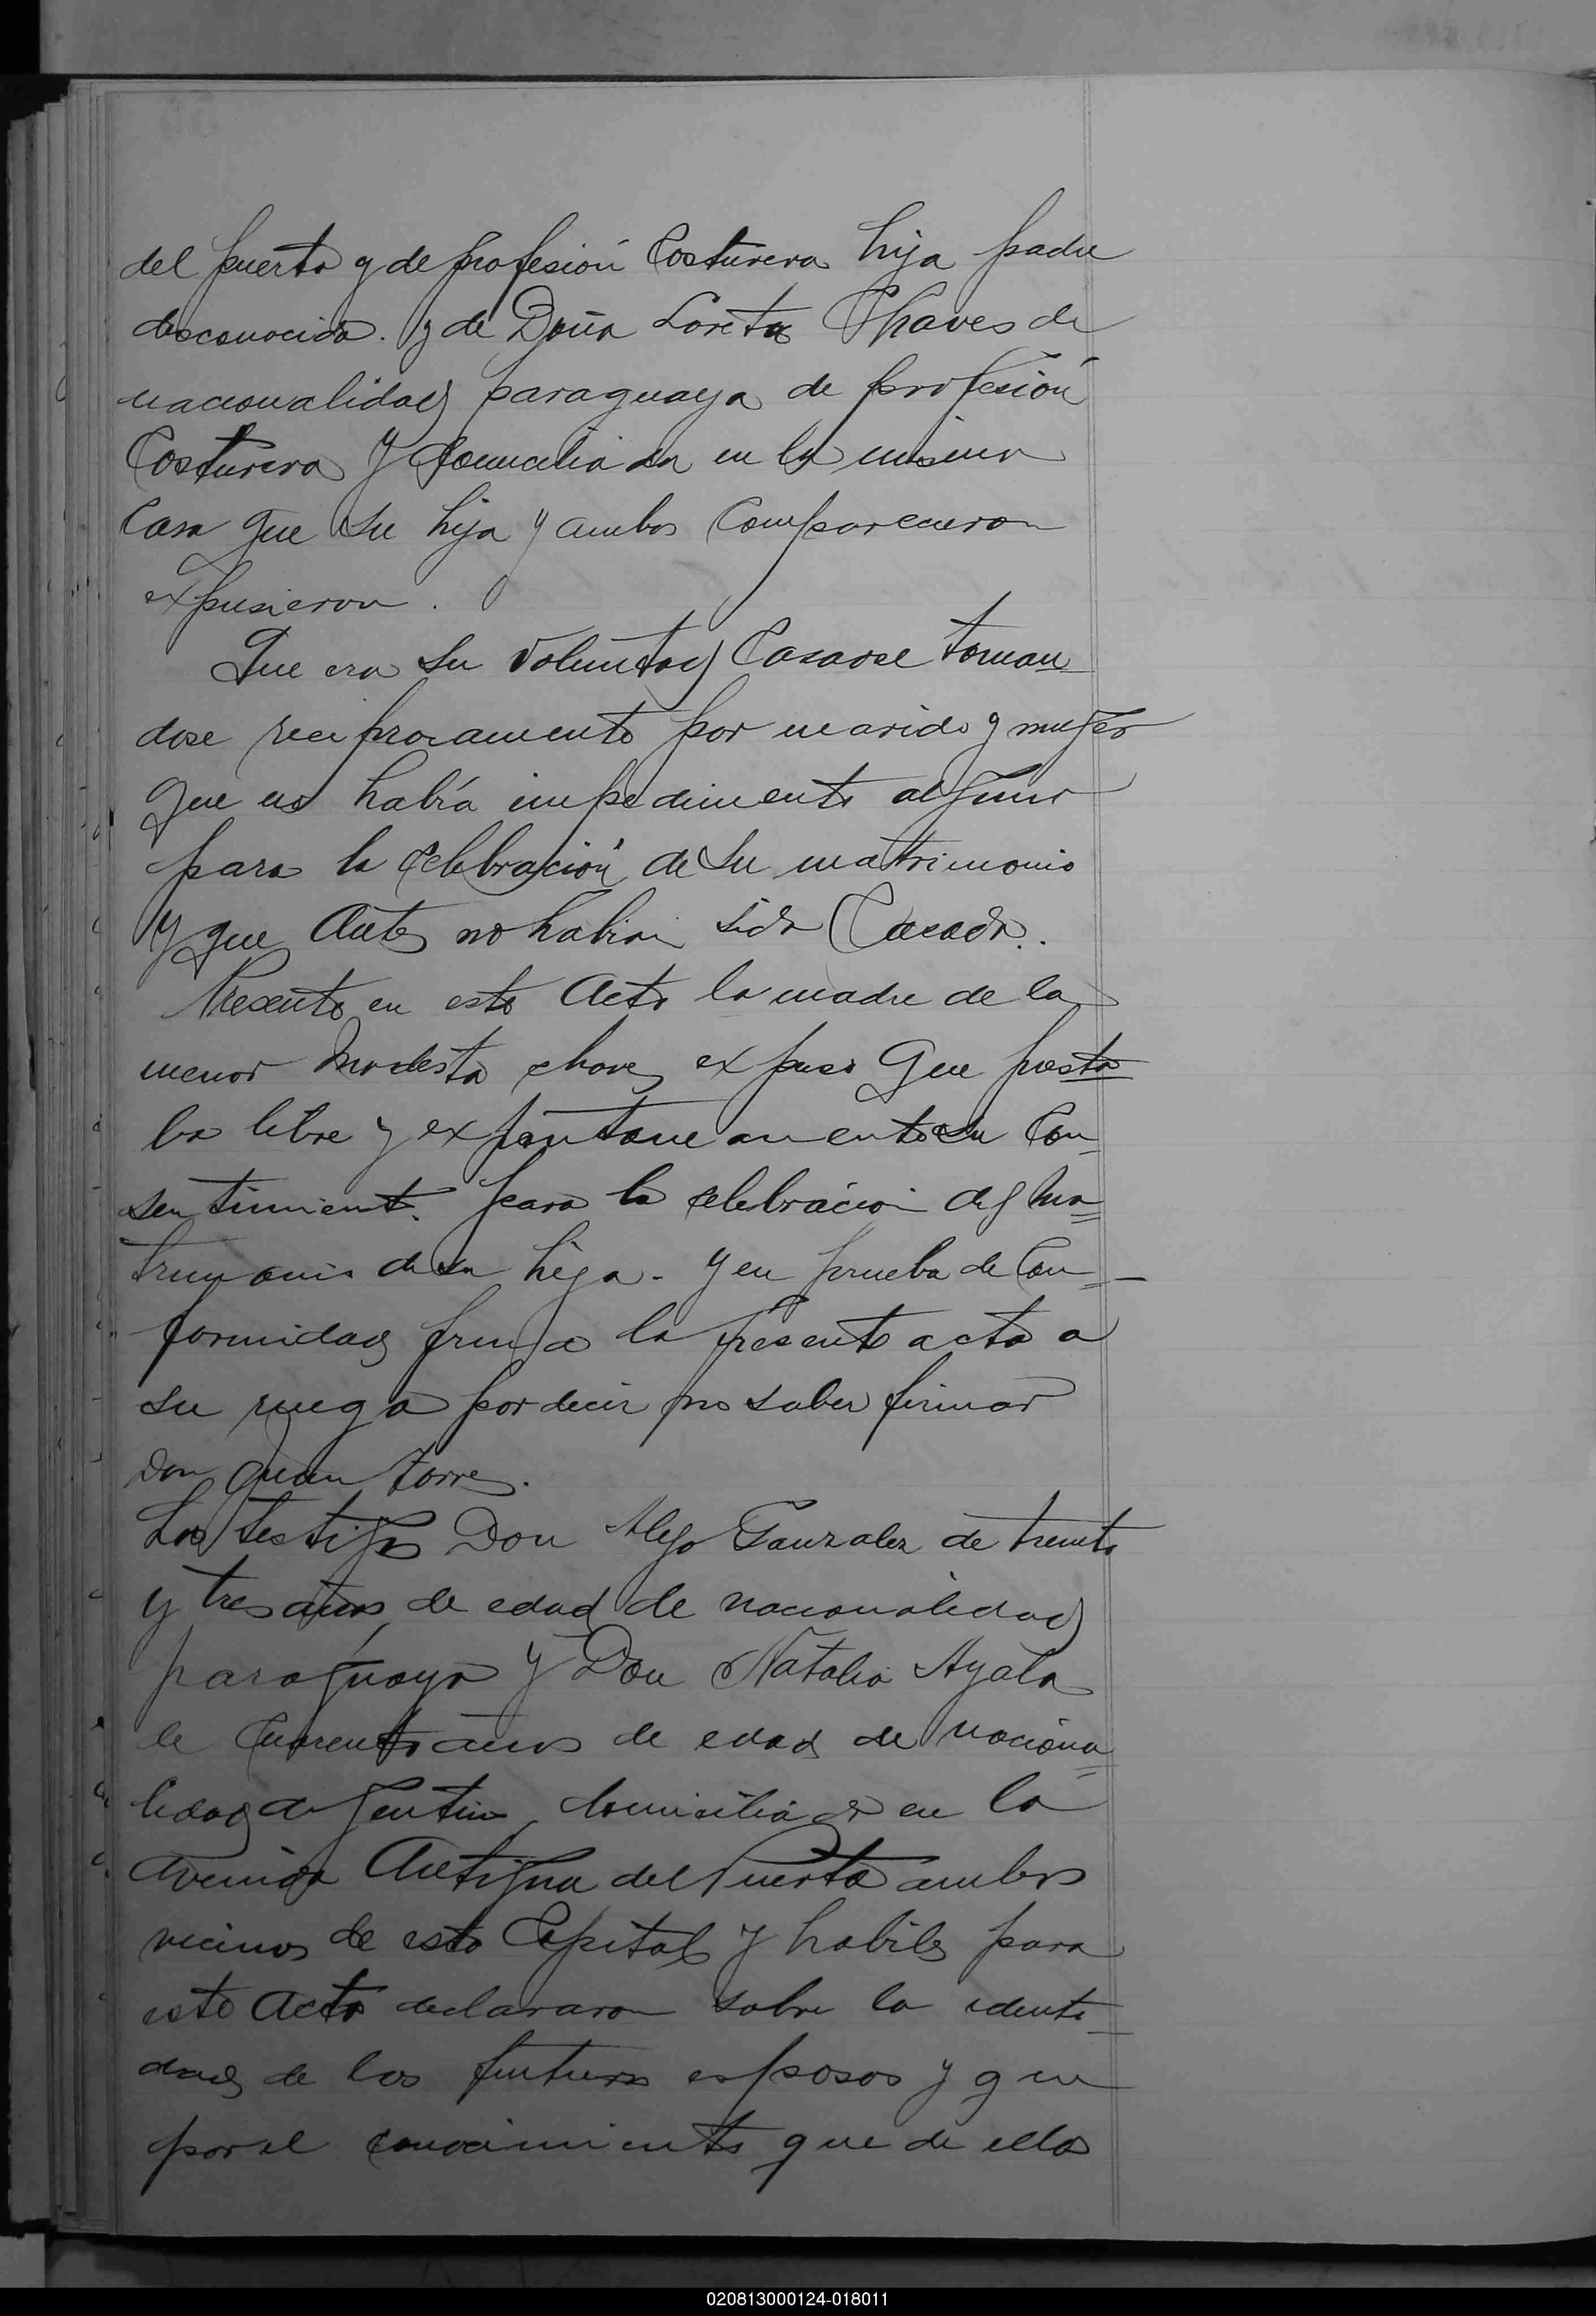 del puerto y de profesión Costurera hija padre
desconocido. y de Doña Loreta Chaves de
nacionalidad paraguaya de profesión
Costurera y domiciliada en la misma
Casa que su hija y ambos Comparecieron
expusieron.
Que era su voluntad Casarse toman
dose reciprocamente por marido y mujer
que no había impedimento alguno
para la celebración de su matrimonio
y que Antes no habian sido Casado.
Presente en este Acto la madre de la
menor Modesta chaves expuso que presta
ba libre y expontaneamente su Con
sentimiento para la celebracion del ma
trimonio de su hija. y en prueba de Con
formidad firma la presente acta a
su ruego por decir no saber firmar
Don Juan Torres.
Los testigos Don Alejo Gonzalez de treinta
y tres años de edad de nacionalidad
paraguaya y Don Natalio Ayala
de Cuarenta años de edad de naciona
lidad argentina domiciliado en la
Avenida Antigua del Puerto ambos
vecinos de esta Capital y habiles para
este Acto declararon sobre la identi
dad de los futuros esposos y que
por el conocimiento que de ellos
020813000124-018011